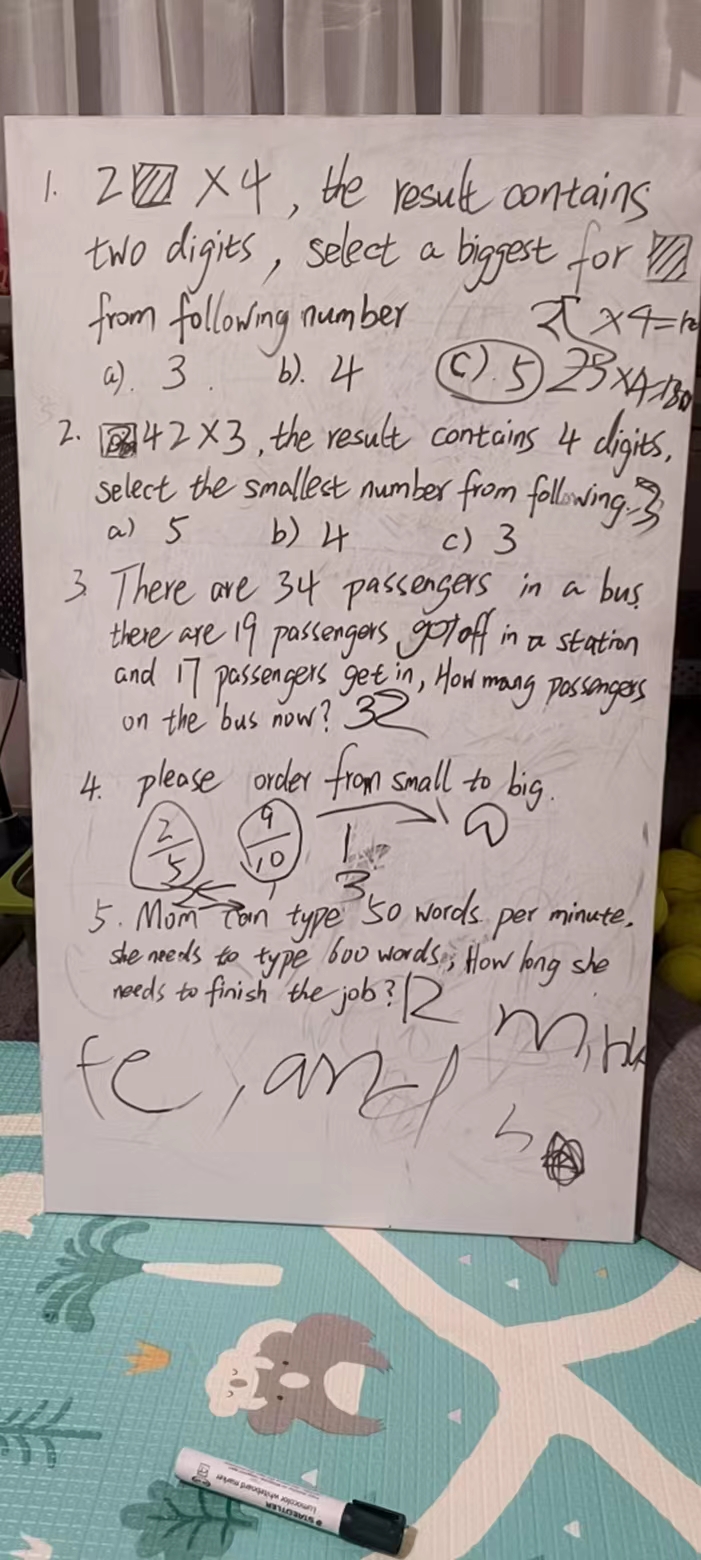 1. 2 × 4, the result contains
two digits, select a biggest for
from following number
a). 3. b). 4 (c). 5
2. 42×3, the result contains 4 digits,
select the smallest number from following. 3
a) 5 b) 4 c) 3
3. There are 34 passengers in a bus
there are 19 passengers got off in a station
and 17 passengers get in, How mang passengers
on the bus now? 32
4. please order from small to big.
2/5 9/10 1
3
5. Mom can type 50 words per minute.
she needs to type 600 words, How long she
needs to finish the job? 12
STAEDTLER
Lumocolor whiteboard marker